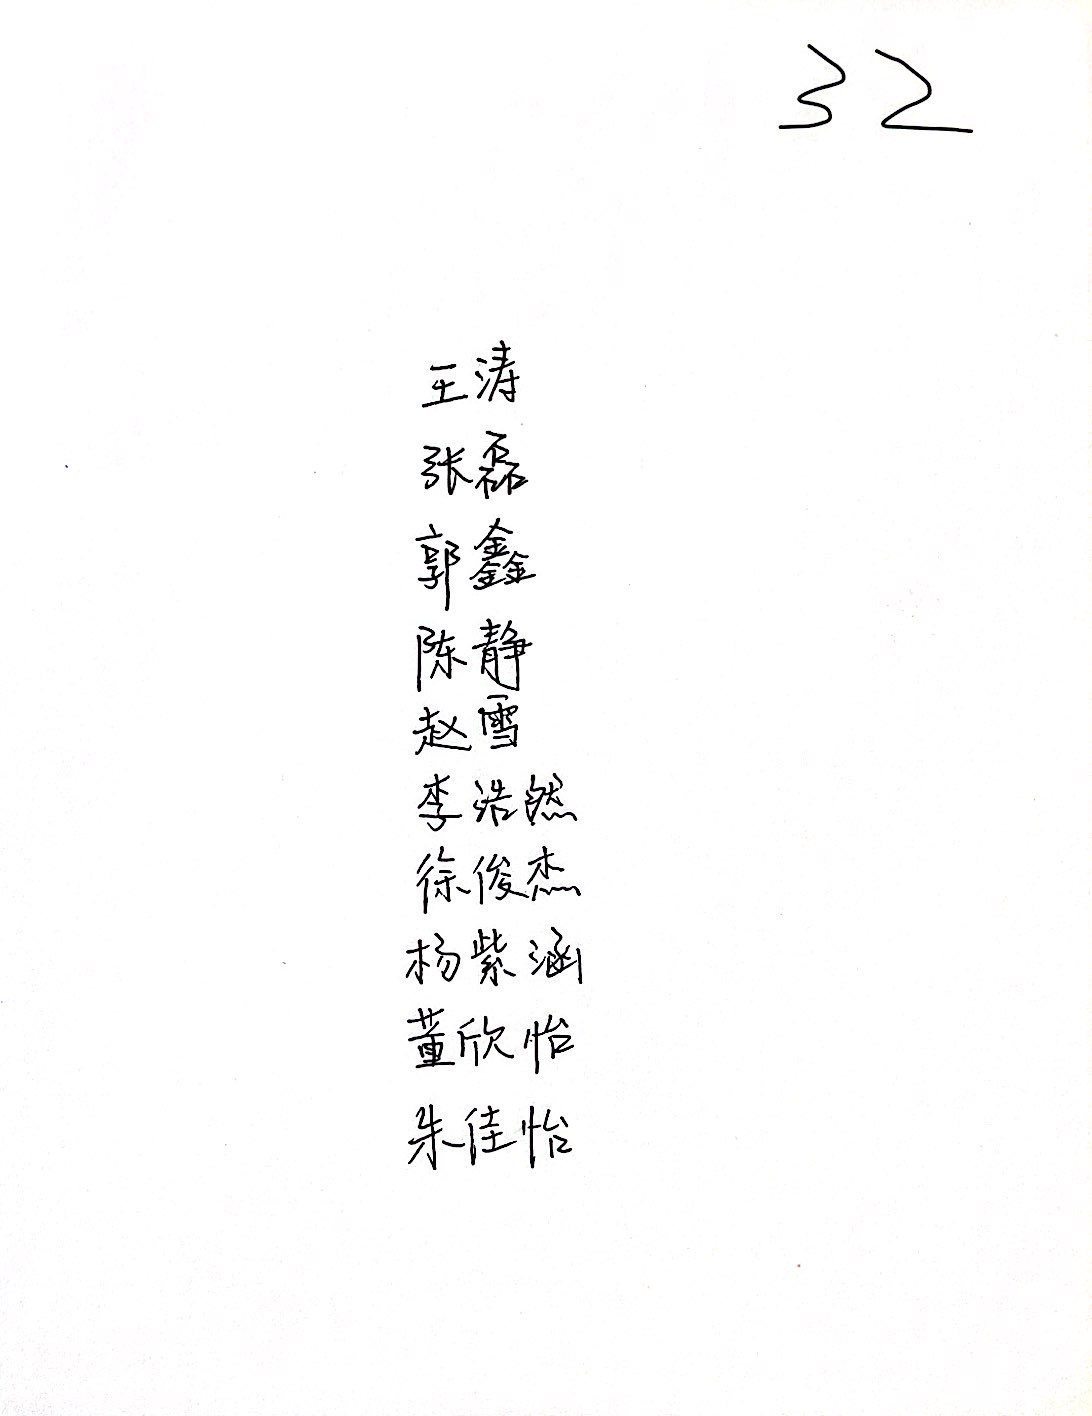 32
王涛
张磊
郭鑫
陈静
赵雪
李浩然
徐俊杰
杨紫涵
董欣怡
朱佳怡